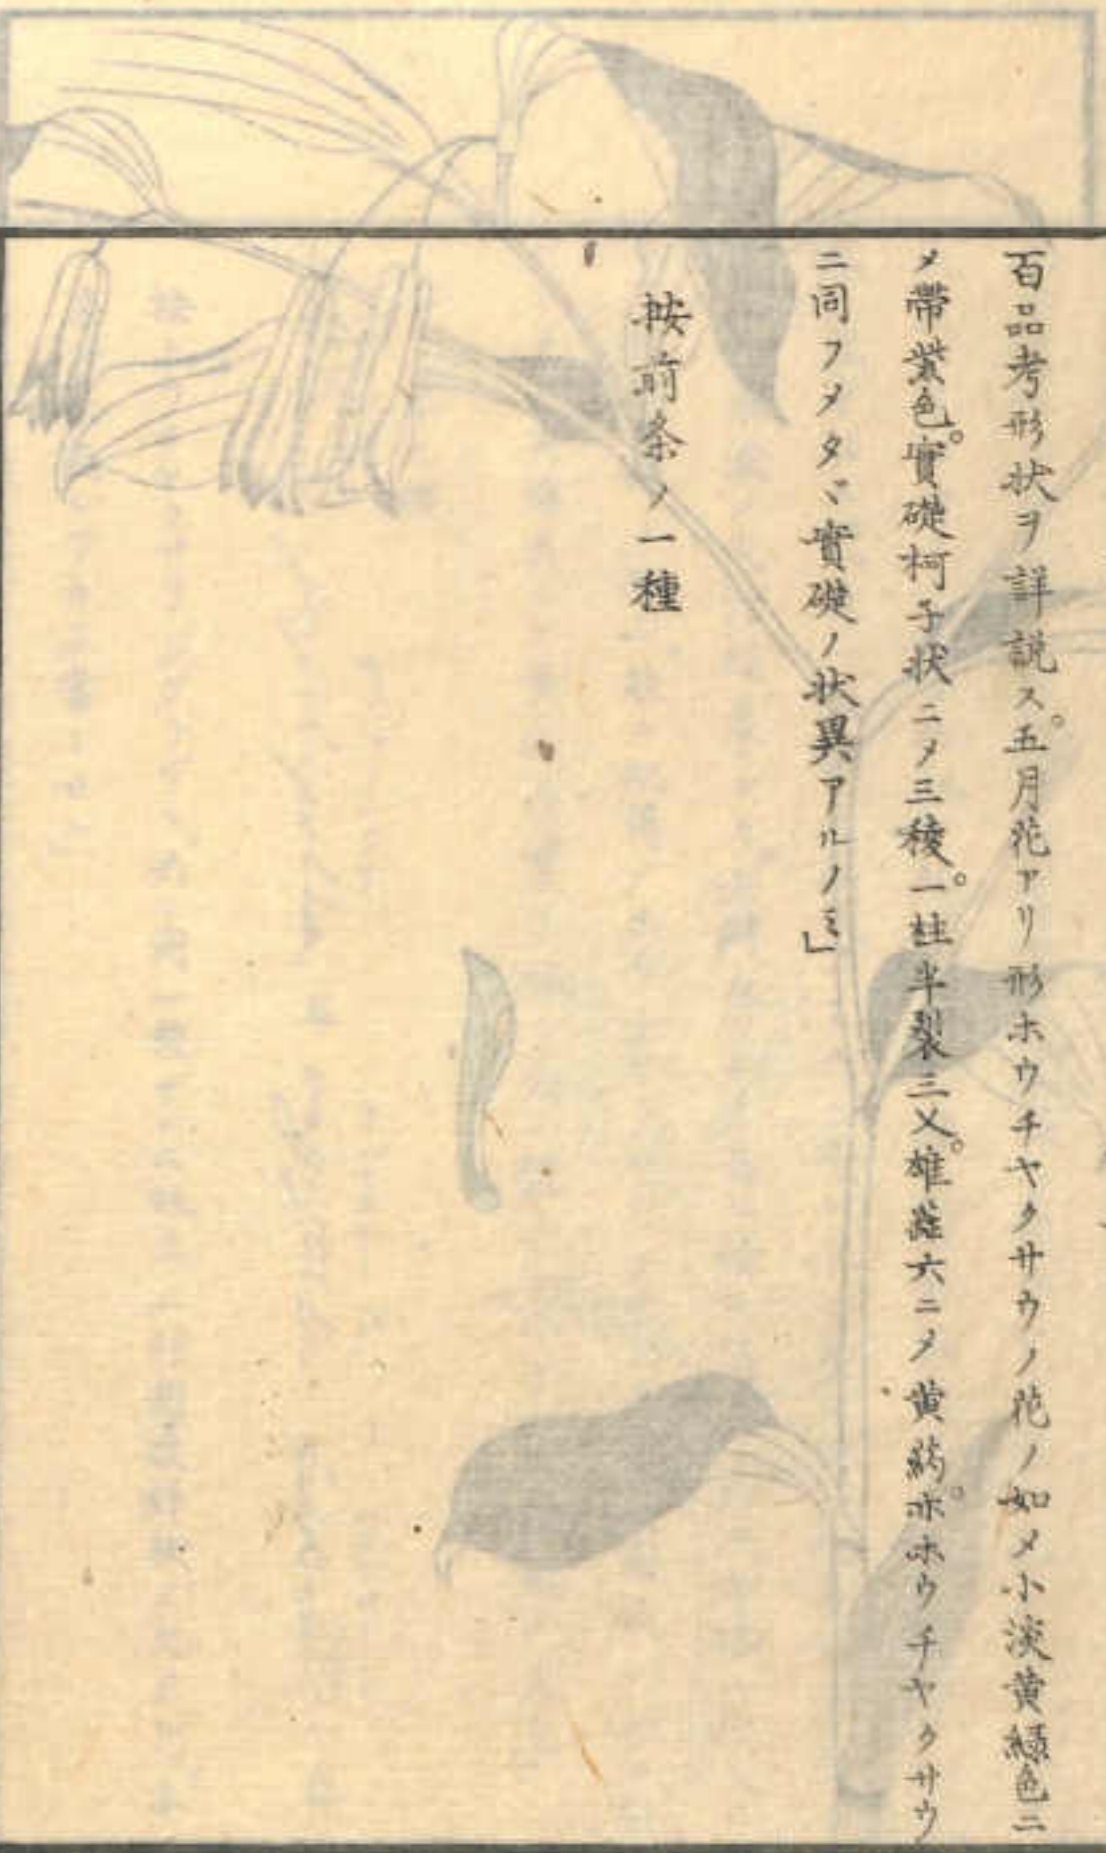 百品考形状ヲ詳説ス。五月花アリ形ホウチヤクサウノ花ノ如〆小淡黄緑色ニ
〆帶紫色。實礎柯子状ニ〆三稜。一柱半裂三乂。雄蕋六ニ〆黄葯。亦ホウチヤクサウ
ニ同フ〆タヾ實礎ノ状異アルノミ」
按前条ノ一種